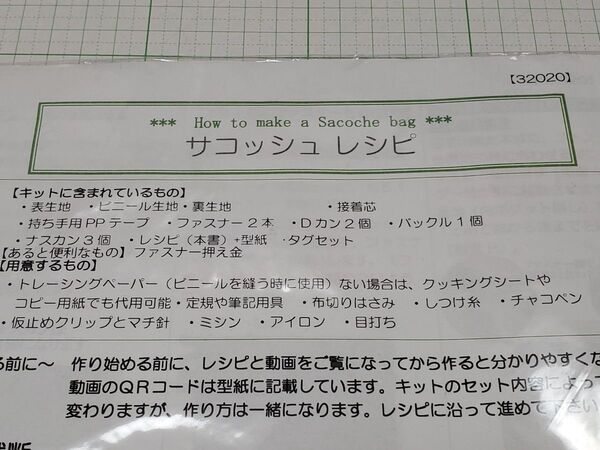 【32020】
*** How to make a Sacoche bag ***
サコッシュ レシピ
【キットに含まれているもの】
・表生地 ・ビニール生地・裏生地 ・接着芯
・持ち手用PPテープ ・ファスナー2本 ・Dカン2個 ・バックル1個
・ナスカン3個 ・レシピ（本書）+型紙 ・タグセット
【あると便利なもの】ファスナー押え金
【用意するもの】
・トレーシングペーパー（ビニールを縫う時に使用）ない場合は、クッキングシートや
コピー用紙でも代用可能・定規や筆記用具 ・布切りはさみ ・しつけ糸 ・チャコペン
・仮止めクリップとマチ針 ・ミシン ・アイロン ・目打ち
る前に～ 作り始める前に、レシピと動画をご覧になってから作ると分かりやすくな
動画のQRコードは型紙に記載しています。キットのセット内容によって
変わりますが、作り方は一緒になります。レシピに沿って進めて下さい